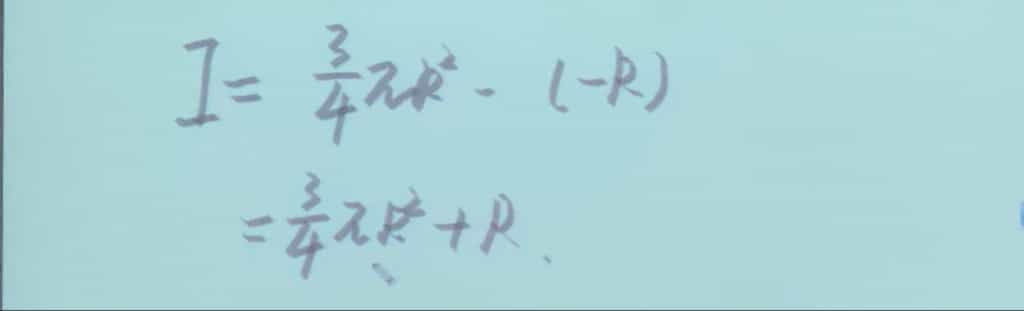 I = \frac{3}{4} π R² - (-R)
= \frac{3}{4} π R² + R.